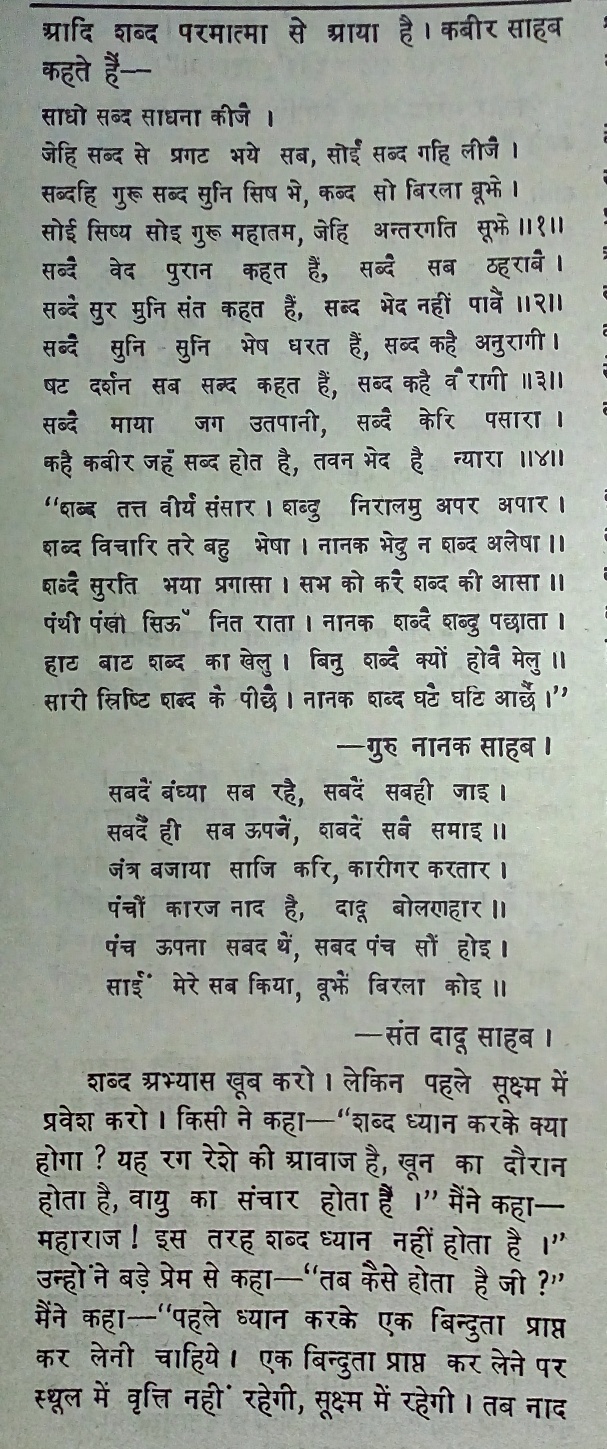 आदि शब्द परमात्मा से आया है । कबीर साहब
कहते हैं—
साधो सब्द साधना कीजै ।
जेहि सब्द से प्रगट भये सब, सोई सब्द गहि लीजै ।
सब्दहि गुरू सब्द सुनि सिष भे, कब्द सो बिरला बूझे ।
सोई सिष्य सोइ गुरू महातम, जेहि अन्तरगति सूझे ॥१॥
सब्दै वेद पुरान कहत हैं, सब्दै सब ठहराबै ।
सब्दै सुर मुनि संत कहत हैं, सब्द भेद नहीं पावै ॥२॥
सब्दै सुनि सुनि भेष धरत हैं, सब्द कहै अनुरागी ।
षट दर्शन सब सब्द कहत हैं, सब्द कहै वैरागी ॥३॥
सब्दै माया जग उतपानी, सब्दै केरि पसारा ।
कहै कबीर जहँ सब्द होत है, तवन भेद है न्यारा ॥४॥
“शब्द तत्त वीर्य संसार । शब्दु निरालमु अपर अपार ।
शब्द विचारि तरे बहु भेषा । नानक भेदु न शब्द अलेषा ॥
शब्दै सुरति भया प्रगासा । सभ को करै शब्द की आसा ॥
पंथी पंखी सिऊँ नित राता । नानक शब्दै शब्दु पछाता ।
हाट बाट शब्द का खेलु । बिनु शब्दै क्यों होवै मेलु ॥
सारी स्रिष्टि शब्द कै पीछै । नानक शब्द घटै घटि आछै ।”
—गुरु नानक साहब ।
सबदैं बंध्या सब रहै, सबदैं सबही जाइ ।
सबदैं ही सब ऊपनैं, शबदैं सबै समाइ ॥
जंत्र बजाया साजि करि, कारीगर करतार ।
पंचौं कारज नाद है, दादू बोलणहार ॥
पंच ऊपना सबद थैं, सबद पंच सौं होइ ।
साईं मेरे सब किया, बूझैं बिरला कोइ ॥
—संत दादू साहब ।
शब्द अभ्यास खूब करो । लेकिन पहले सूक्ष्म में
प्रवेश करो । किसी ने कहा—“शब्द ध्यान करके क्या
होगा ? यह रग रेशे की आवाज है, खून का दौरान
होता है, वायु का संचार होता है ।” मैंने कहा—
महाराज ! इस तरह शब्द ध्यान नहीं होता है ।”
उन्होंने बड़े प्रेम से कहा—“तब कैसे होता है जी ?”
मैंने कहा—“पहले ध्यान करके एक बिन्दुता प्राप्त
कर लेनी चाहिये । एक बिन्दुता प्राप्त कर लेने पर
स्थूल में वृत्ति नहीं रहेगी, सूक्ष्म में रहेगी । तब नाद